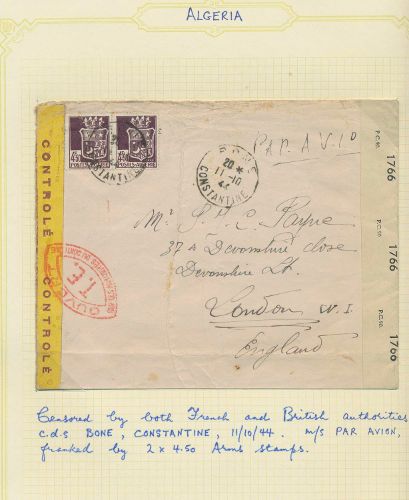 ALGERIA
CONTROLÉ CONTROLÉ
4F50
4F50
CONSTANTINE
BONE
20 *
11-10
44
CONSTANTINE
PAR AVION
P.C.90. 1766
P.C.90. 1766
P.C.90. 1766
OUVERT
T.E.
Payne
37 A Devonshire Close
Devonshire St.
London W.1
England
Censored by both French and British authorities
c.d.s BONE, CONSTANTINE, 11/10/44. m/s PAR AVION,
franked by 2 x 4.50 Arms stamps.